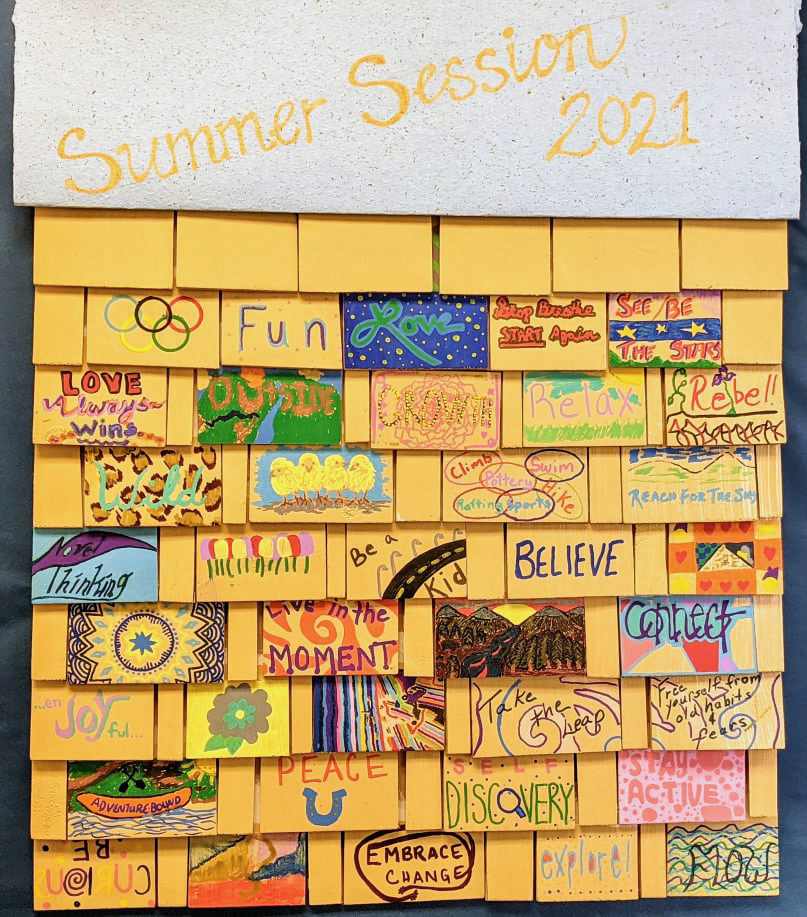 Summer Session
2021
Fun
Love
Stop Breathe
START Again
SEE/BE
THE STARS
LOVE
Always
Wins
OUTSIDE
GROWTH
Relax
Rebel!!
Wild
Climb
Swim
Pottery
Hike
Rafting
Sports
REACH FOR THE SKY
Novel
Thinking
Be a
Kid
BELIEVE
Live in the
MOMENT
Connect
...en
Joy
ful...
Take
the
Leap
Free yourself from
old habits
&
fears
ADVENTURE BOUND
PEACE
SELF
DISCOVERY
STAY
ACTIVE
EMBRACE
CHANGE
explore!
FLOW